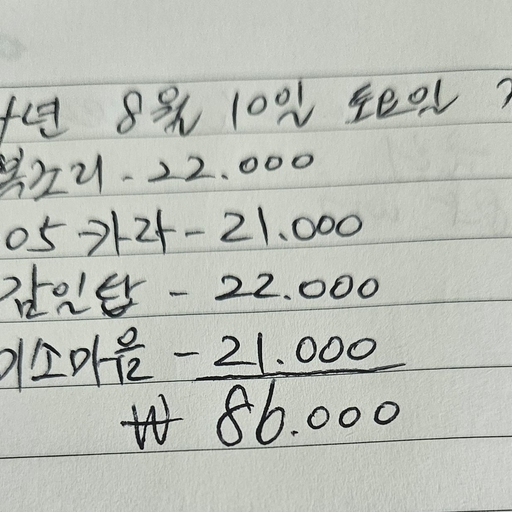 년 8월 10일 토요일
복조리 - 22.000
05 가라 - 21.000
감일탑 - 22.000
미소마음 - 21.000
₩ 86.000